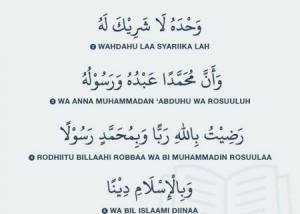 وَحْدَهُ لَا شَرِيْكَ لَهُ
2 WAHDAHU LAA SYARIIKA LAH
وَأَنَّ مُحَمَّدًا عَبْدُهُ وَرَسُوْلُهُ
3 WA ANNA MUHAMMADAN 'ABDUHU WA ROSUULUH
رَضِيْتُ بِاللهِ رَبًّا وَبِمُحَمَّدٍ رَسُوْلًا
4 RODHIITU BILLAAHI ROBBAA WA BI MUHAMMADIN ROSUULAA
وَبِالْإِسْلَامِ دِيْنًا
5 WA BIL ISLAAMI DIINAA